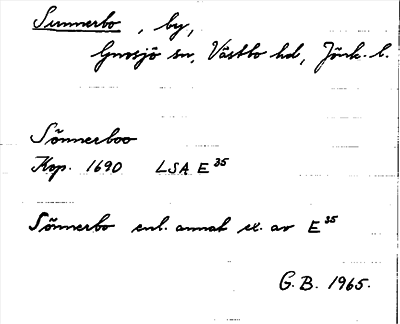 Sunnerbo, by,
Gnosjö sn, Västbo hd, Jönk. l.
Sönnerboo
Kop. 1690 LSA E 35
Sönnerbo enl. annat ex. av E 35
G.B. 1965.